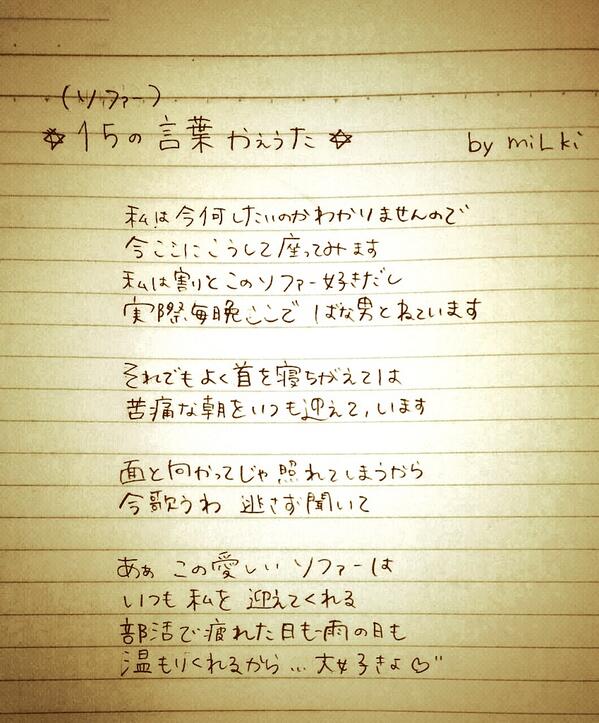 (ソファー)
☆15の言葉 かえうた☆ by miLki
私は今何したいのかわかりませんので
今ここにこうして座ってみます
私は割りとこのソファー好きだし
実際毎晩ここで ばな男とねています
それでもよく首を寝ちがえては
苦痛な朝をいつも迎えて,います
面と向かってじゃ照れてしまうから
今歌うわ 逃さず聞いて
あぁ この愛しい ソファーは
いつも 私を 迎えてくれる
部活で疲れた日も雨の日も
温もりくれるから... 大好きよ♡"